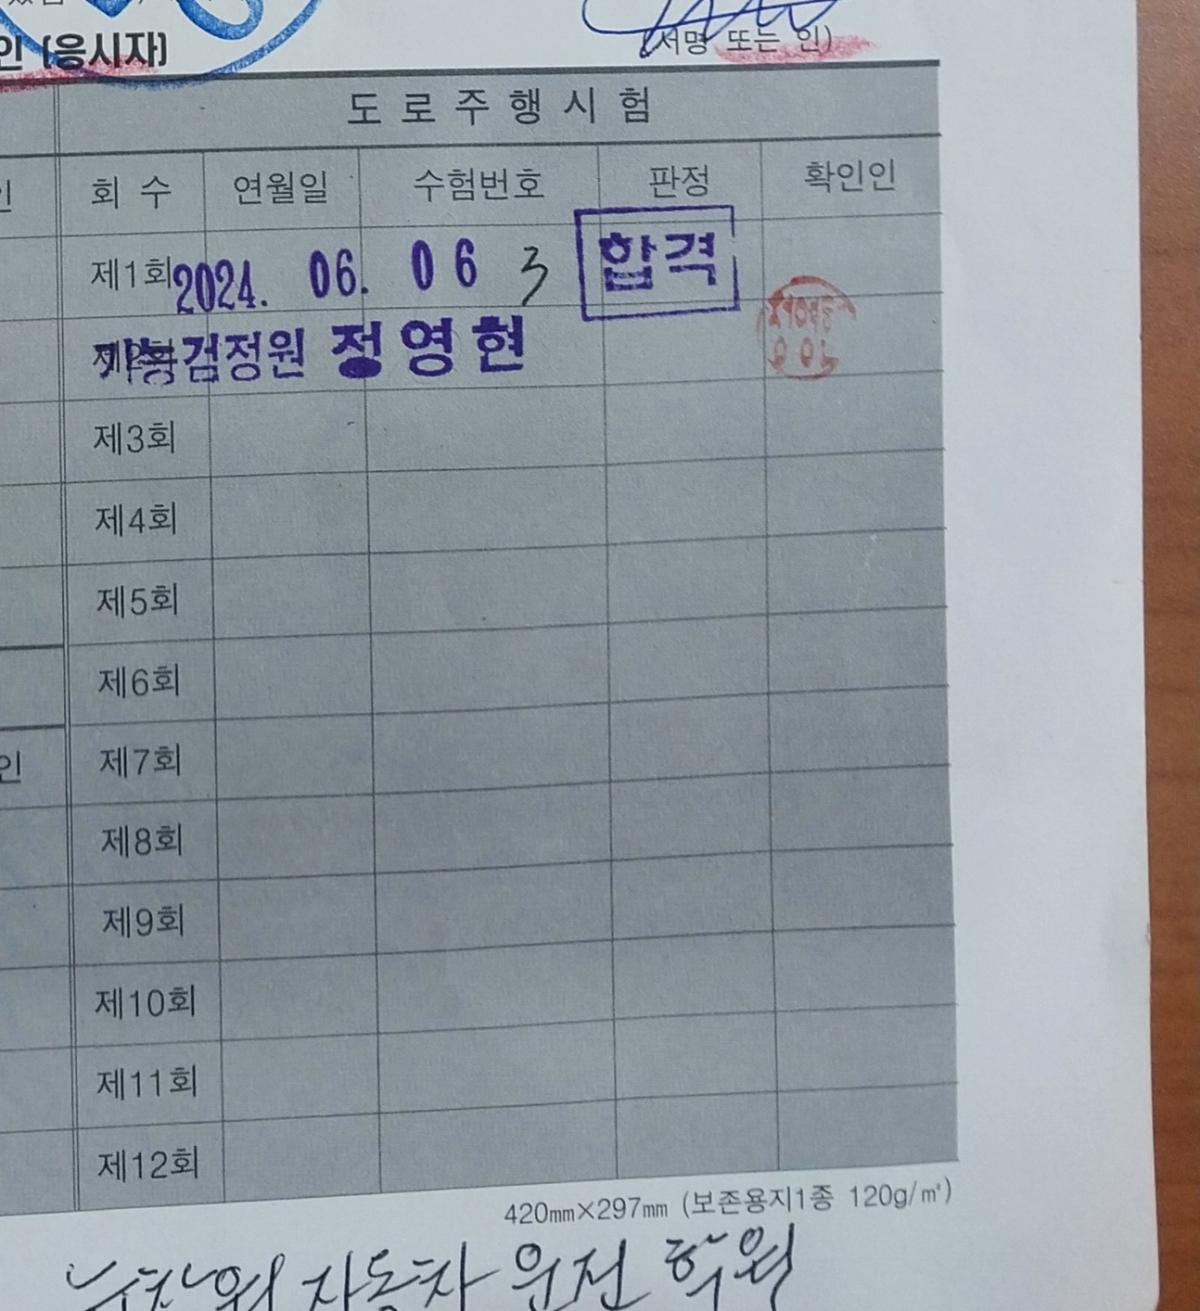 인 (응시자)
(서명 또는 인)
도로주행시험
인 회 수 연월일 수험번호 판정 확인인
제1회 2024. 06. 06 3 합격
기능검정원 정영현
제3회
제4회
제5회
제6회
인 제7회
제8회
제9회
제10회
제11회
제12회
420㎜×297㎜ (보존용지1종 120g/㎡)
자동차 운전 학원